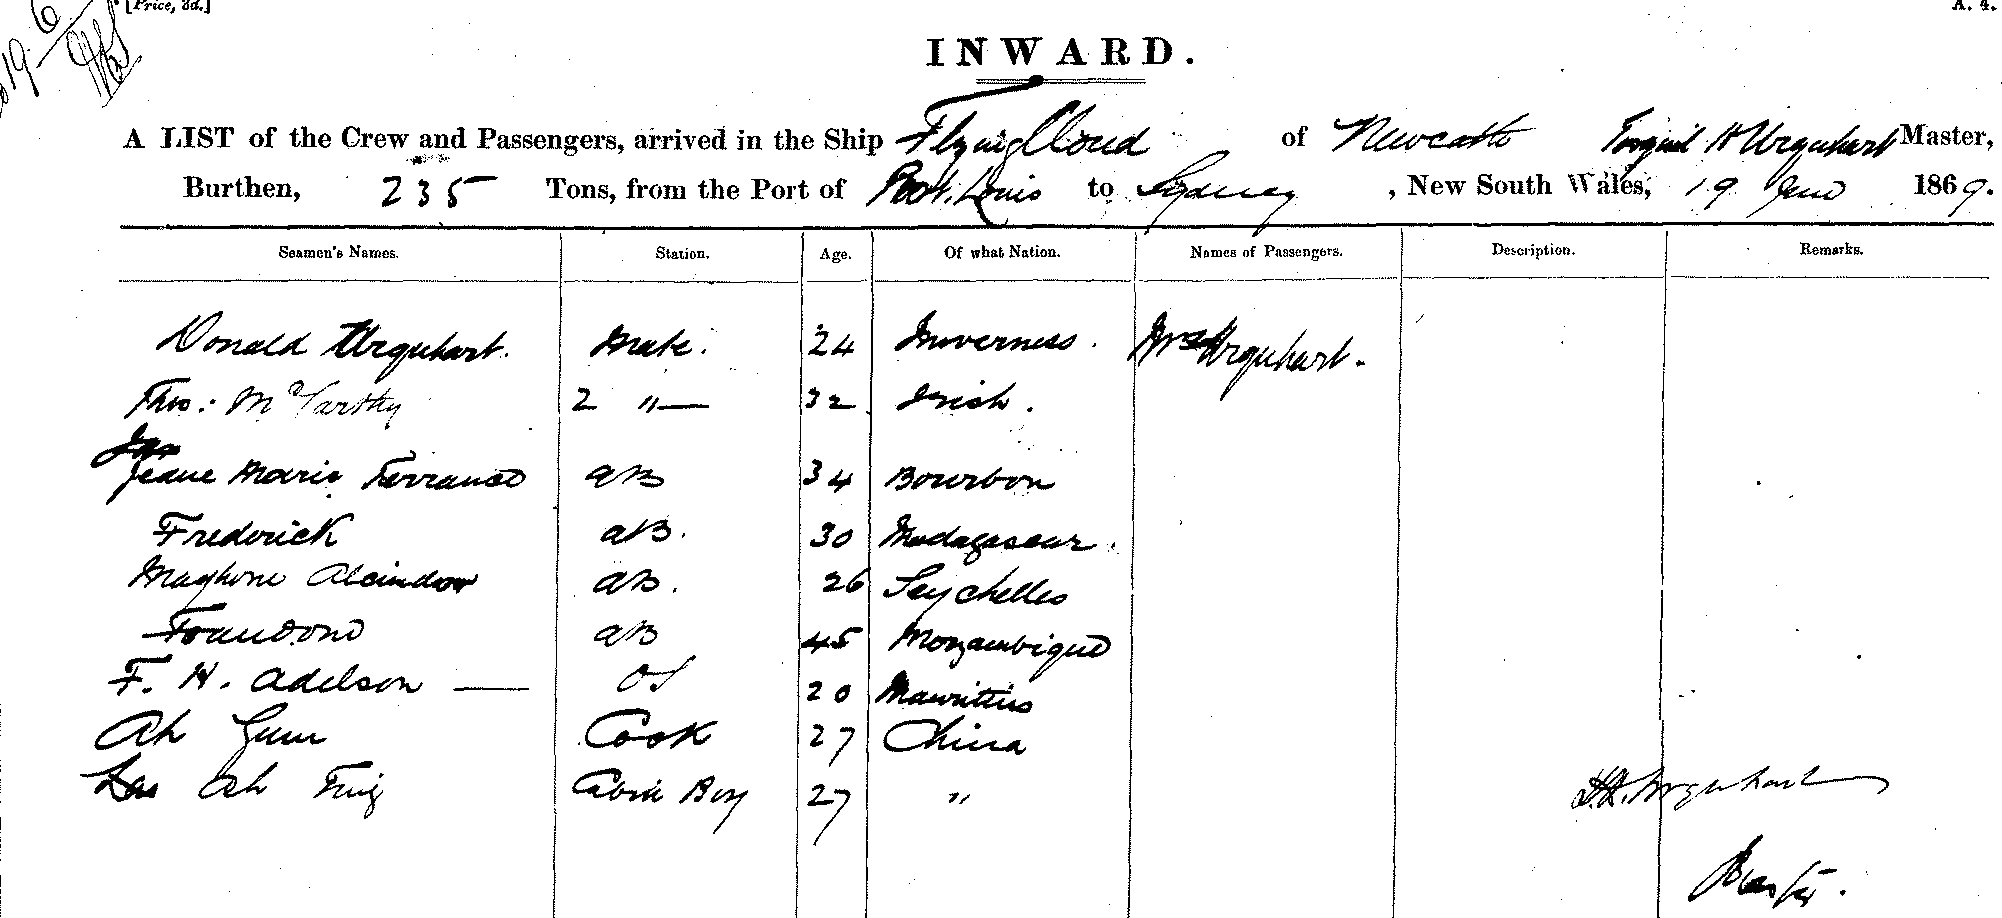 [Price, 3d.] A. 4.
19-6
INWARD.
A LIST of the Crew and Passengers, arrived in the Ship Flying Cloud of Newcastle Torquil H Urquhart Master,
Burthen, 235 Tons, from the Port of Port Louis to Sydney, New South Wales, 19 June 1869.
Seamen's Names. Station. Age. Of what Nation. Names of Passengers. Description. Remarks.
Donald Urquhart. Mate. 24 Inverness. Mrs Urquhart.
Thos: McCarthy 2 "— 32 Irish.
Jeane Marie AB 34 Bourbon
Frederick AB. 30 Madagascar.
Alcindor AB. 26 Seychelles
AB 45 Mozambique
F. H. Adelson — OS 20 Mauritius
Ah Cook 27 China
Ah Cabin Boy 27 "
Urquhart
Master.